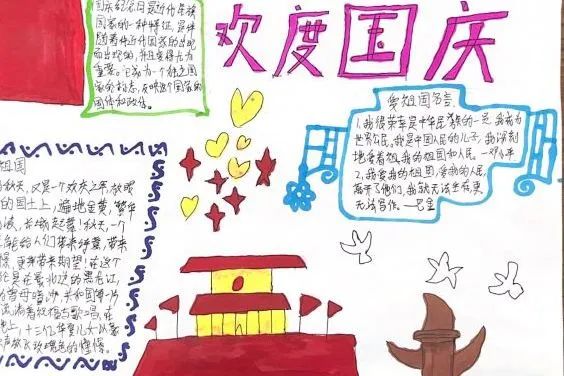 国庆纪念日是近代民族
国家的一种特征，是伴
随着近代国家的出现
而出现的，并且变得尤为
重要。它成为一个独立国
家的标志，反映这个国家的
国体和政体。
欢度国庆
爱祖国名言
1.我很荣幸是中华民族的一员，我成为
世界公民。我是中国人民的儿子，我深刻
地爱着祖，我的祖国和人民。—邓小平
2.我爱我的祖国，爱我的人民，
离开了他们，我就无法生存，更
无法写作。—巴金
祖国
秋天，又是一个欢庆之年，放眼
的国土上，遍地金黄，繁华
长城起舞！秋天，一个
能给人们带来好聚，带来
更带来期望！在这个
是在最北边的黑龙江，
母暗沙，共和国每一片
流淌着祝福与歌唱，在
上，十三亿华夏儿女以豪
放飞玫瑰色的憧憬。